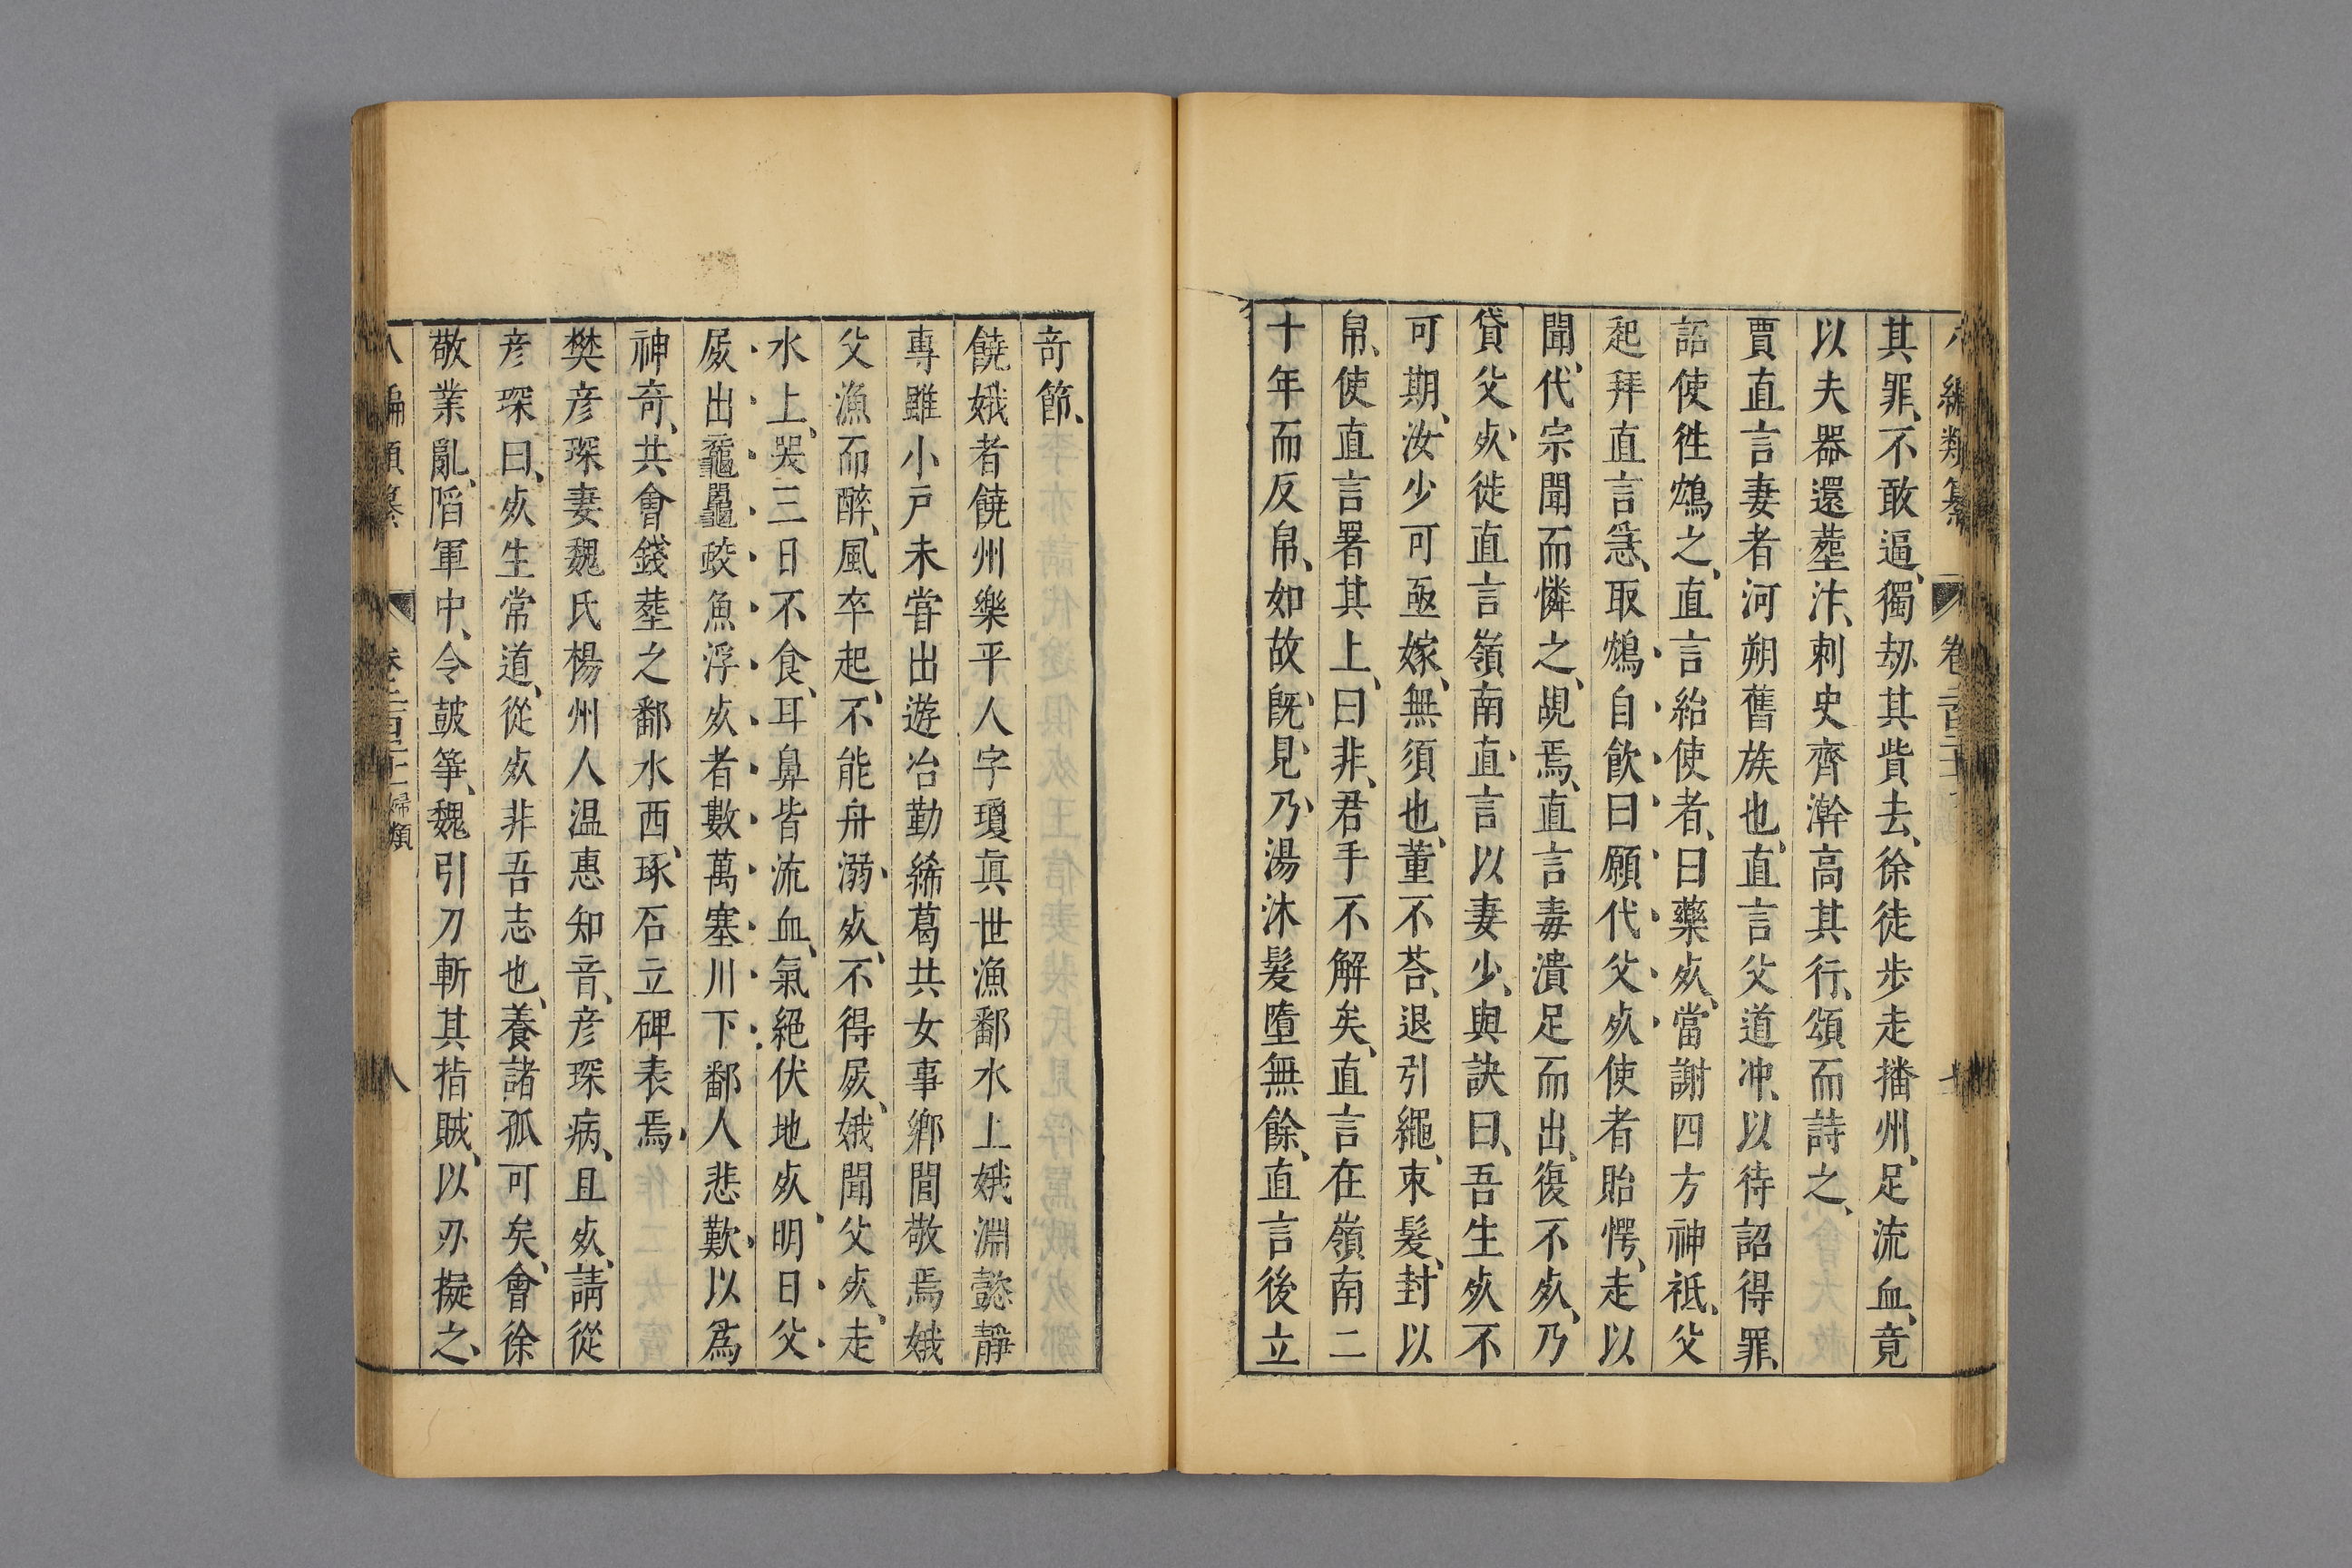 其罪、不敢逼、獨劫其貲去、徐徒步走播州、足流血、竟
以夫器還塟汴、刺史齊澣高其行、頌而詩之、
賈直言妻者河朔舊族也、直言父道冲、以待詔得罪、
詔使徃鴆之、直言紿使者、曰藥㱠、當謝四方神祇、父
起拜直言急、取鴆自飮曰願代父㱠使者眙愕、走以
聞、代宗聞而憐之、覘焉、直言毒潰足而出、復不㱠、乃
貸父㱠、徙直言嶺南直、言以妻少、與訣曰、吾生㱠不
可期、汝少可亟嫁、無須也、董不荅、退引繩、束髮、封以
帛、使直言署其上、曰非、君手不解矣、直言在嶺南二
十年而反帛、如故、旣見、乃湯沐髮墮無餘、直言後立
奇節、
饒娥者饒州樂平人字瓊眞世漁鄱水上娥淵懿靜
專雖小戸未甞出遊冶勤絺葛共女事鄉閭敬焉娥
父漁而醉、風卒起、不能舟溺、㱠、不得屍、娥聞父㱠、走
水上、哭三日不食、耳鼻皆流血、氣絕伏地㱠、明日父
屍出龜鼉蛟魚浮㱠者數萬塞川下鄱人悲歎、以爲
神奇、共會錢塟之鄱水西、琢石立碑表焉、
樊彦琛妻魏氏楊州人温惠知音、彦琛病、且㱠、請從
彦琛曰、㱠生常道、從㱠非吾志也、養諸孤可矣、會徐
敬業亂、䧟軍中、令鼓箏、魏引刀斬其指賊、以刃擬之、
八編類纂 卷二百二十二 婦類 八